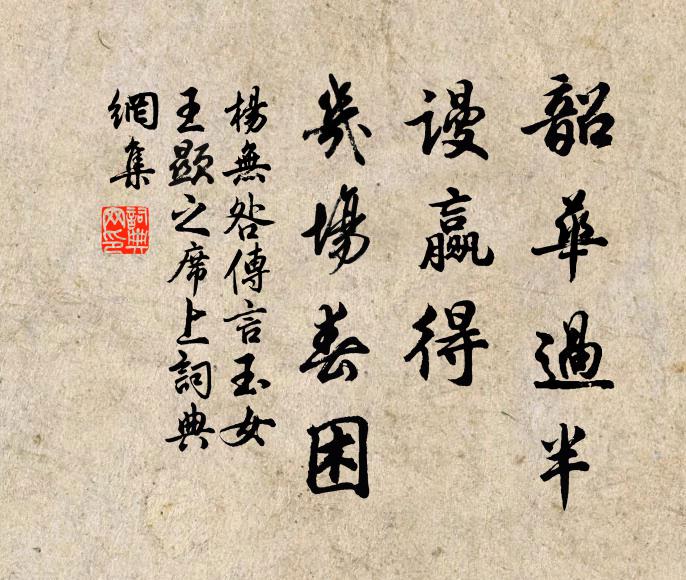 韶華過半
謾贏得
幾場春困
楊無咎傳言玉女
王顯之席上詞典
網集
詞典網印